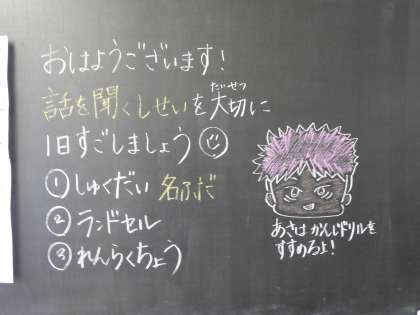 おはようございます!
話を聞くしせいを大切に
たいせつ
1日すごしましょう
①しゅくだい 名ふだ
②ランドセル
③れんらくちょう
あさは かんじドリルを
すすめるよ!